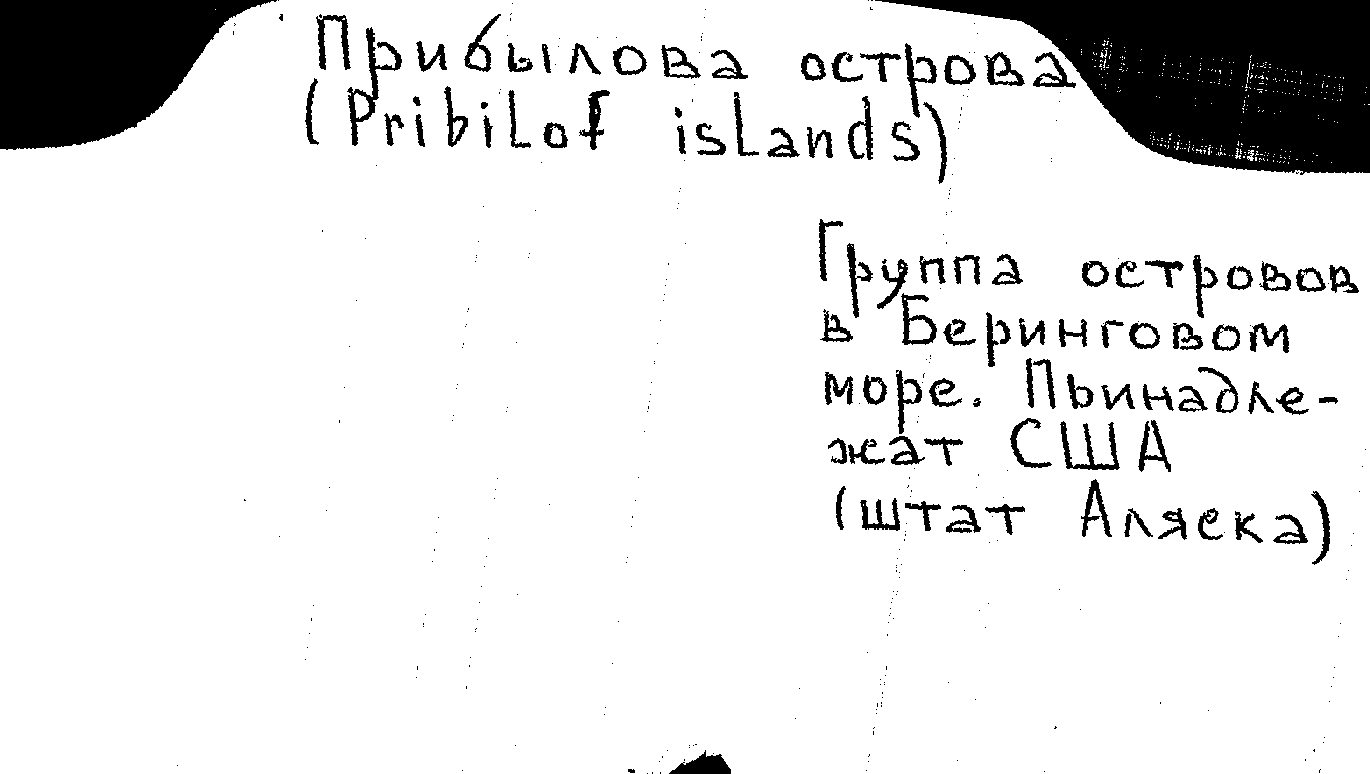 Прибылова острова
(Pribilof islands)
Группа островов
в Беринговом
море. Пьинадле-
жат США
(штат Аляска)